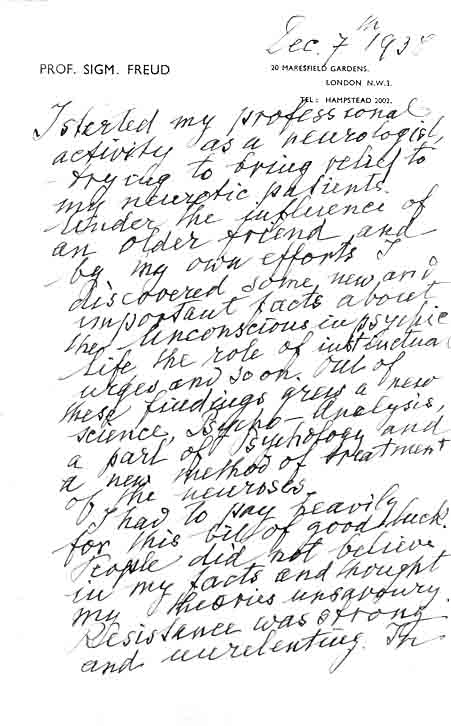 Dec. 7th 1938
PROF. SIGM. FREUD
20 MARESFIELD GARDENS.
LONDON N.W.3.
TEL: HAMPSTEAD 2002.
I started my professional
activity as a neurologist,
trying to bring relief to
my neurotic patients.
Under the influence of
an older friend and
by my own efforts I
discovered some new and
important facts about
the Unconscious in psychic
life, the role of instinctual
urges and so on. Out of
these findings grew a new
science, Psycho-Analysis,
a part of Psychology and
a new method of treatment
of the neuroses.
I had to pay heavily
for this bit of good luck.
People did not believe
in my facts and thought
my theories unsavoury.
Resistance was strong
and unrelenting. In